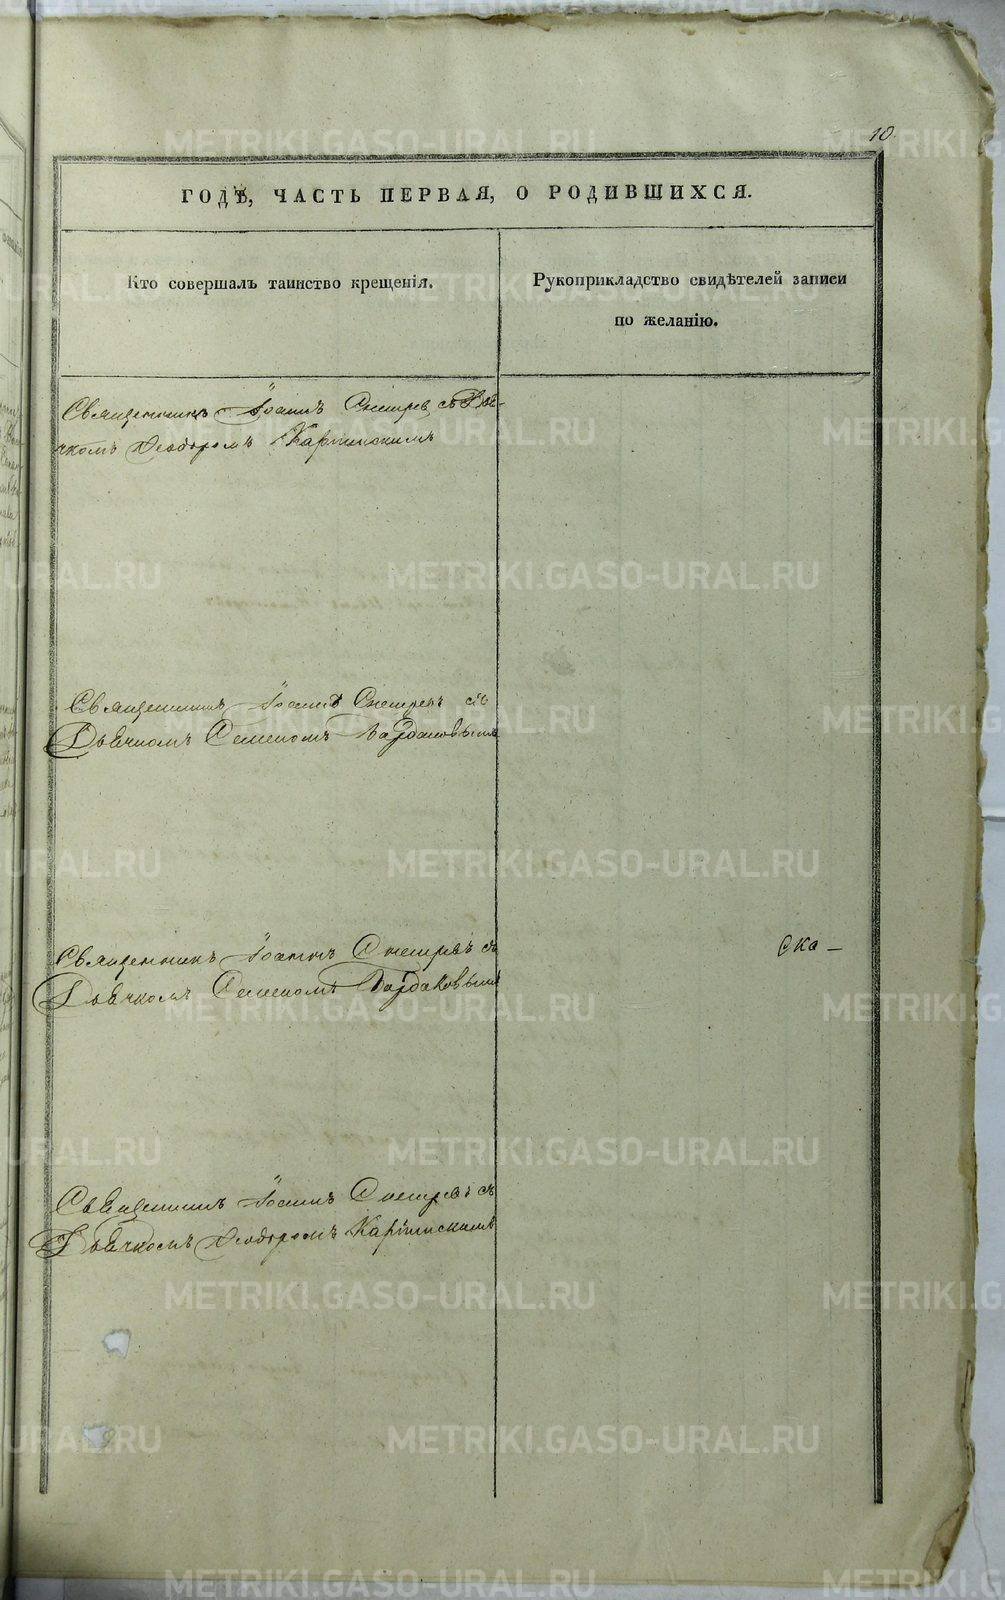 10
ГОДѢ, ЧАСТЬ ПЕРВАЯ, О РОДИВШИХСЯ.
Кто совершалъ таинство крещенія.
Рукоприкладство свидѣтелей записи
по желанію.
Священникъ Іоаннъ съ Дья-
чкомъ Ѳеодоромъ Карпинскимъ
Священникъ Іоаннъ съ
Дьячкомъ Семеномъ
Священникъ Іоаннъ съ
Дьячкомъ Семеномъ
ска-
Священникъ Іоаннъ съ
Дьячкомъ Ѳеодоромъ Карпинскимъ
METRIKI.GASO-URAL.RU